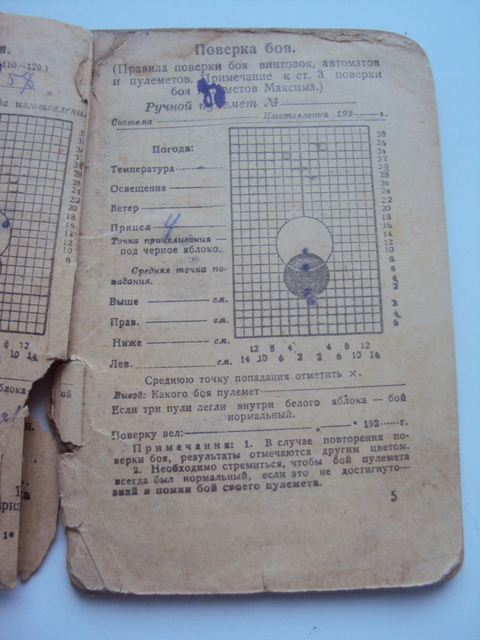 я.
110—129.)
54
да изготовлени
38
34
30
28
26
24
22
20
18
16
14
12
10
8
10 14
яблока
ой
я.
1*
Поверка боя.
(Правила поверки боя винтовок, автоматов
и пулеметов. Примечание к ст. 3 поверки
боя пулеметов Максима.)
Ручной пулемет №
Система Изготовления 192 г.
Погода:
Температура
Освещение
Ветер
Прицел 4
Точка прицеливания —
под черное яблоко.
Средняя точка по-
падания.
Выше см.
Прав. см.
Ниже см.
Лев. см.
38
36
34
30
28
26
24
22
20
18
16
14
12
10
8
6
4
2
2
4
6
12 8 4 4 8 12
14 10 6 2 2 6 10 14
Среднюю точку попадания отметить ×.
Вывод: Какого боя пулемет
Если три пули легли внутри белого яблока — бой
нормальный.
Поверку вел: „ “ 192 г.
Примечания: 1. В случае повторения по-
верки боя, результаты отмечаются другим цветом.
2. Необходимо стремиться, чтобы бой пулемета
всегда был нормальный, если это не достигнуто—
знай и помни бой своего пулемета.
5